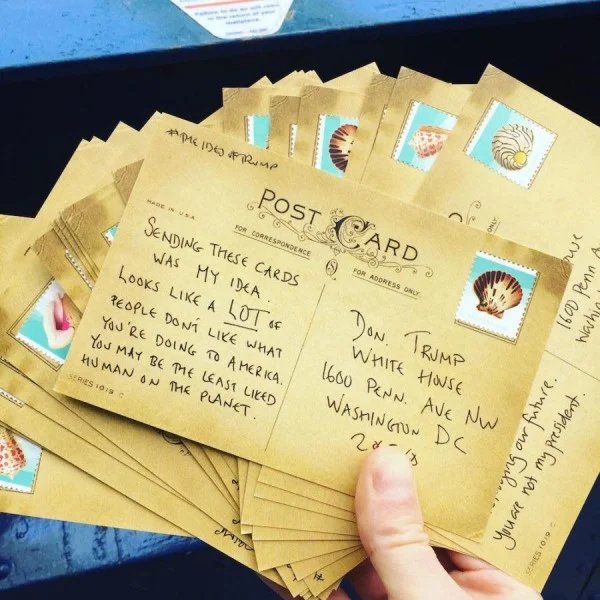 #THEIDESOFTRUMP
POST CARD
MADE IN U.S.A
FOR CORRESPONDENCE
FOR ADDRESS ONLY
SENDING THESE CARDS
WAS MY IDEA.
LOOKS LIKE A LOT OF
PEOPLE DON'T LIKE WHAT
YOU'RE DOING TO AMERICA.
YOU MAY BE THE LEAST LIKED
HUMAN ON THE PLANET.
SERIES 1019 C
DON. TRUMP
WHITE HOUSE
1600 PENN. AVE NW
WASHINGTON DC
ONLY
1600 Penn
our future.
You are not my president.
SERIES 1019 C